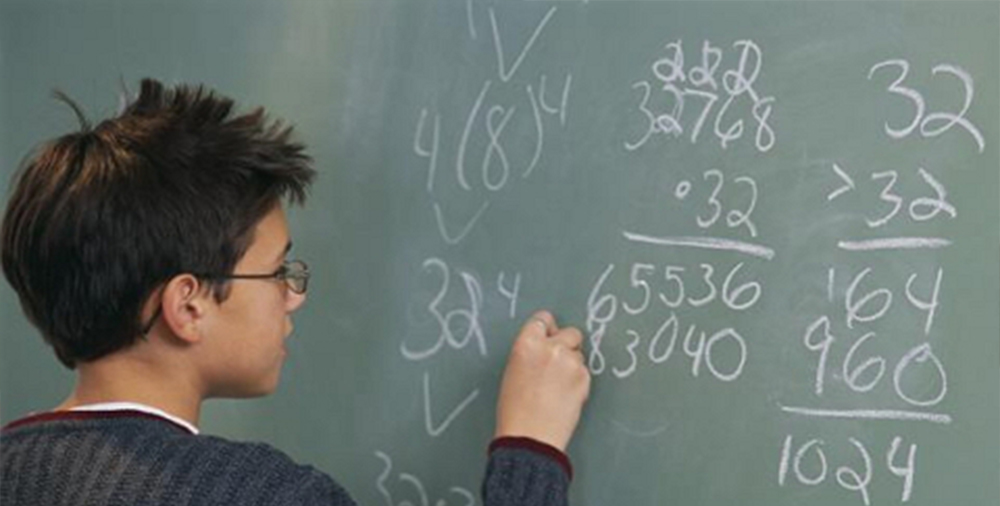 4(8)⁴
32⁴
222
32768
·32
65536
83040
32
>32
¹64
960
1024